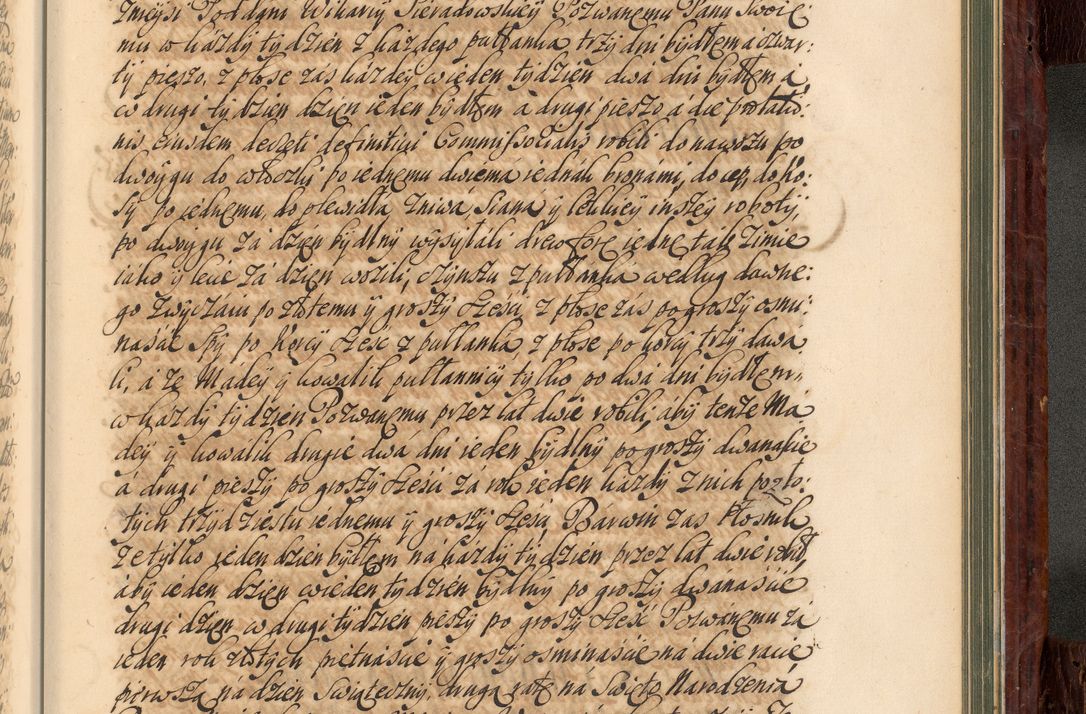 mnieysi Poddani Wikaryi Sieradowskiey Pozwanemu Panu Swoie:
mu w każdy tydzien z każdego pułłanka trzy dni bydłem a czwar:
ty pieszo, z płose zás káżdey w ieden tydzien dwá dni bydłem á
w drugi tydzien dzien ieden bydłem a drugi pieszo a die prolatio:
nis eiusdem decreti definitivi Commissorialis robili do nawozu po
dwoygu do włoczki po iednemu dwiema iednák bronámi, do cep, do ko:
sy po iednemu, do plewidła Zniwá, Siana y lekkiey inszey roboty,
po dwoygu zá dzien bydlny wysyłáli drew forę iednę ták zimie
iako y lecie zá dzien wozili, czynszu z pułłanka według dawne:
go zwyczaiu po złotemu y groszy sześci, z płose zás po groszy osmi:
naście Spy po korcy sześć z pułłanka, z płose po korcy trzy dawá
li, á że Madey y Kowalik pułłannicy tylko po dwá dni bydłem,
w káżdy tydzien Pozwanemu przez lat dwie robili, aby tenże Má
dey y Kowalik drugie dwá dni ieden bydlny po groszy dwanaście
á drugi pieszy po groszy sześci zá rok ieden każdy z nich po zło:
tych trzydziestu iednemu y groszy sześci Bárwin zas Płosnik
że tylko ieden dzien bydłem ná każdy tydzien przez lat dwie robił,
áby ieden dzien w ieden tydzien bydlny po groszy dwanaście
drugi dzien w drugi tydzien pieszy po groszy sześć Pozwanemu zá
ieden rok złotych piętnáście y groszy osmináście ná dwie racie
pierwszą ná dzien Swiąteczny, drugą ratę ná Swięto Narodzenia